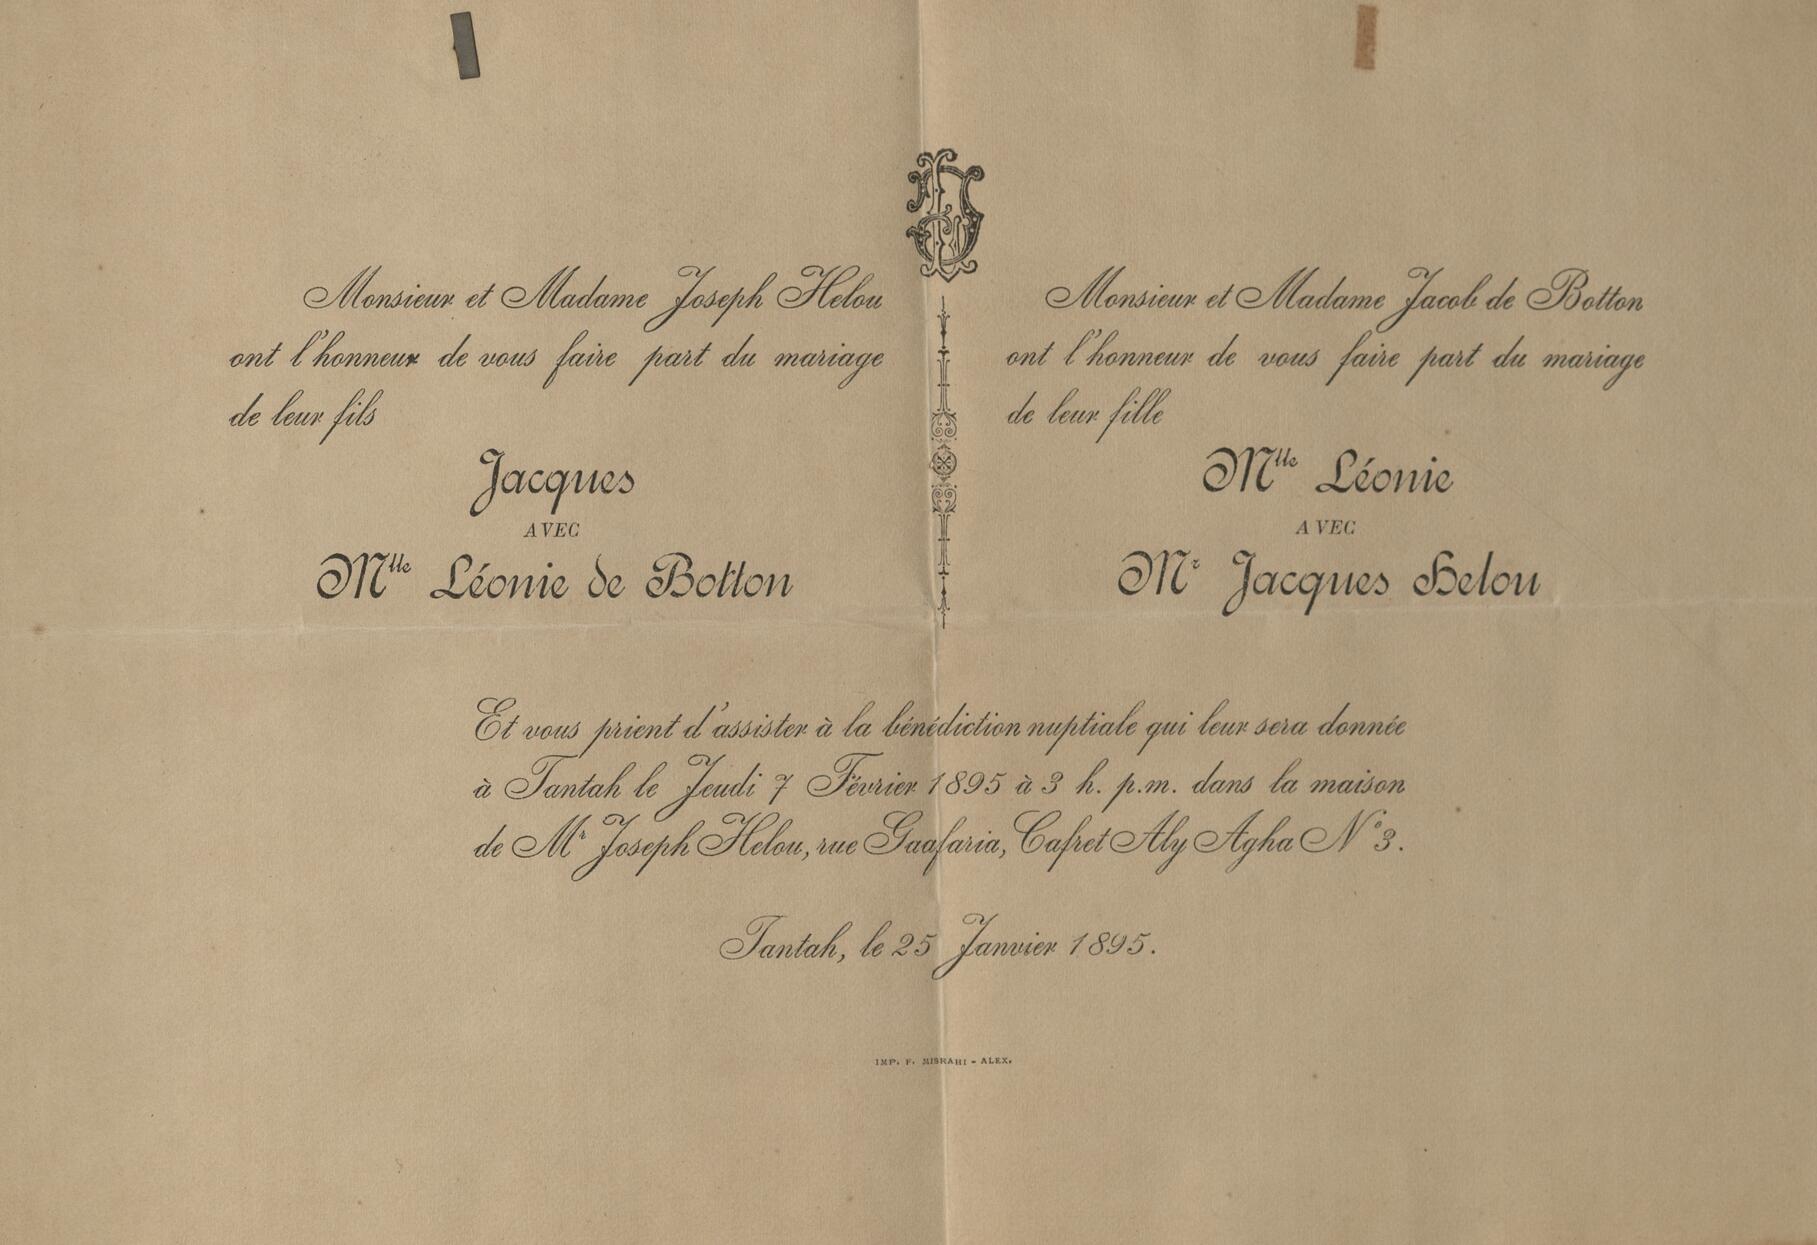 Monsieur et Madame Joseph Helou
ont l'honneur de vous faire part du mariage
de leur fils
Jacques
AVEC
Mlle Léonie de Botton
Monsieur et Madame Jacob de Botton
ont l'honneur de vous faire part du mariage
de leur fille
Mlle Léonie
AVEC
Mr Jacques Helou
Et vous prient d'assister à la bénédiction nuptiale qui leur sera donnée
à Tantah le Jeudi 7 Février 1895 à 3 h. p.m. dans la maison
de Mr Joseph Helou, rue Gaafaria, Cafret Aly Agha No 3.
Tantah, le 25 Janvier 1895.
IMP. F. MISRAHI - ALEX.